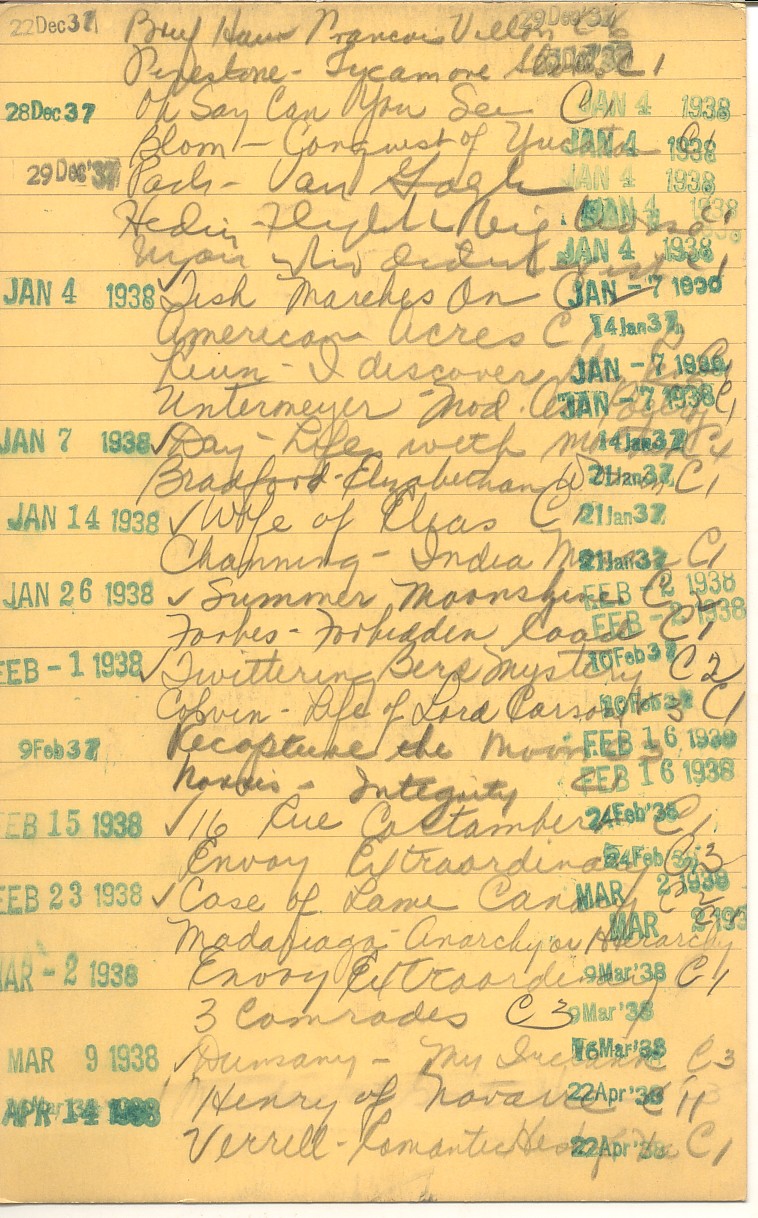 22 Dec 37 Brief Hour Francois Villon C 29 Dec '37
Pinestone - Sycamore C1
28 Dec 37 Oh Say Can You See C1 JAN 4 1938
Blom - Conquest of Yucatan C1 JAN 4 1938
29 Dec '37 Pach - Van Gogh JAN 4 1938
Hedin - Flight Big Horse C1 JAN 4
Man who didn't C1 JAN 4 1938
JAN 4 1938 ✓ Tish Marches On C JAN -7
American Acres C 14 Jan 37
- I discover C1 JAN -7
Untermeyer - Mod. C1 JAN -7 1938
JAN 7 1938 ✓ Day - Life with Mother C4 14 Jan 37
Bradford - Elizabethan Women C1 21 Jan 37
JAN 14 1938 ✓ Wife of Elias C1 21 Jan 37
Channing - India C1 21 Jan 37
JAN 26 1938 ✓ Summer Moonshine C2 FEB -2 1938
Forbes - Forbidden Road C1 FEB -2 1938
FEB -1 1938 ✓ Twittering Bird Mystery C2 10 Feb 37
Colvin - Life of Lord Carson V 3 C1 10 Feb 37
9 Feb 37 Recapture the Moon FEB 16 1938
Norris - Integrity C1 FEB 16 1938
FEB 15 1938 ✓ 16 Rue C1 24 Feb '38
Envoy Extraordinary C3 24 Feb
FEB 23 1938 ✓ Case of Lame Canary C2 MAR 2 1938
Madariaga - Anarchy or Hierarchy C1 MAR 2 193
MAR -2 1938 Envoy Extraordinary C1 9 Mar '38
3 Comrades C3 9 Mar '38
MAR 9 1938 ✓ Dunsany - My Ireland C3 16 Mar '38
APR 14 1938 Henry of Navarre C4 22 Apr '38
Verrell - Romantic Hist of the C1 22 Apr '38